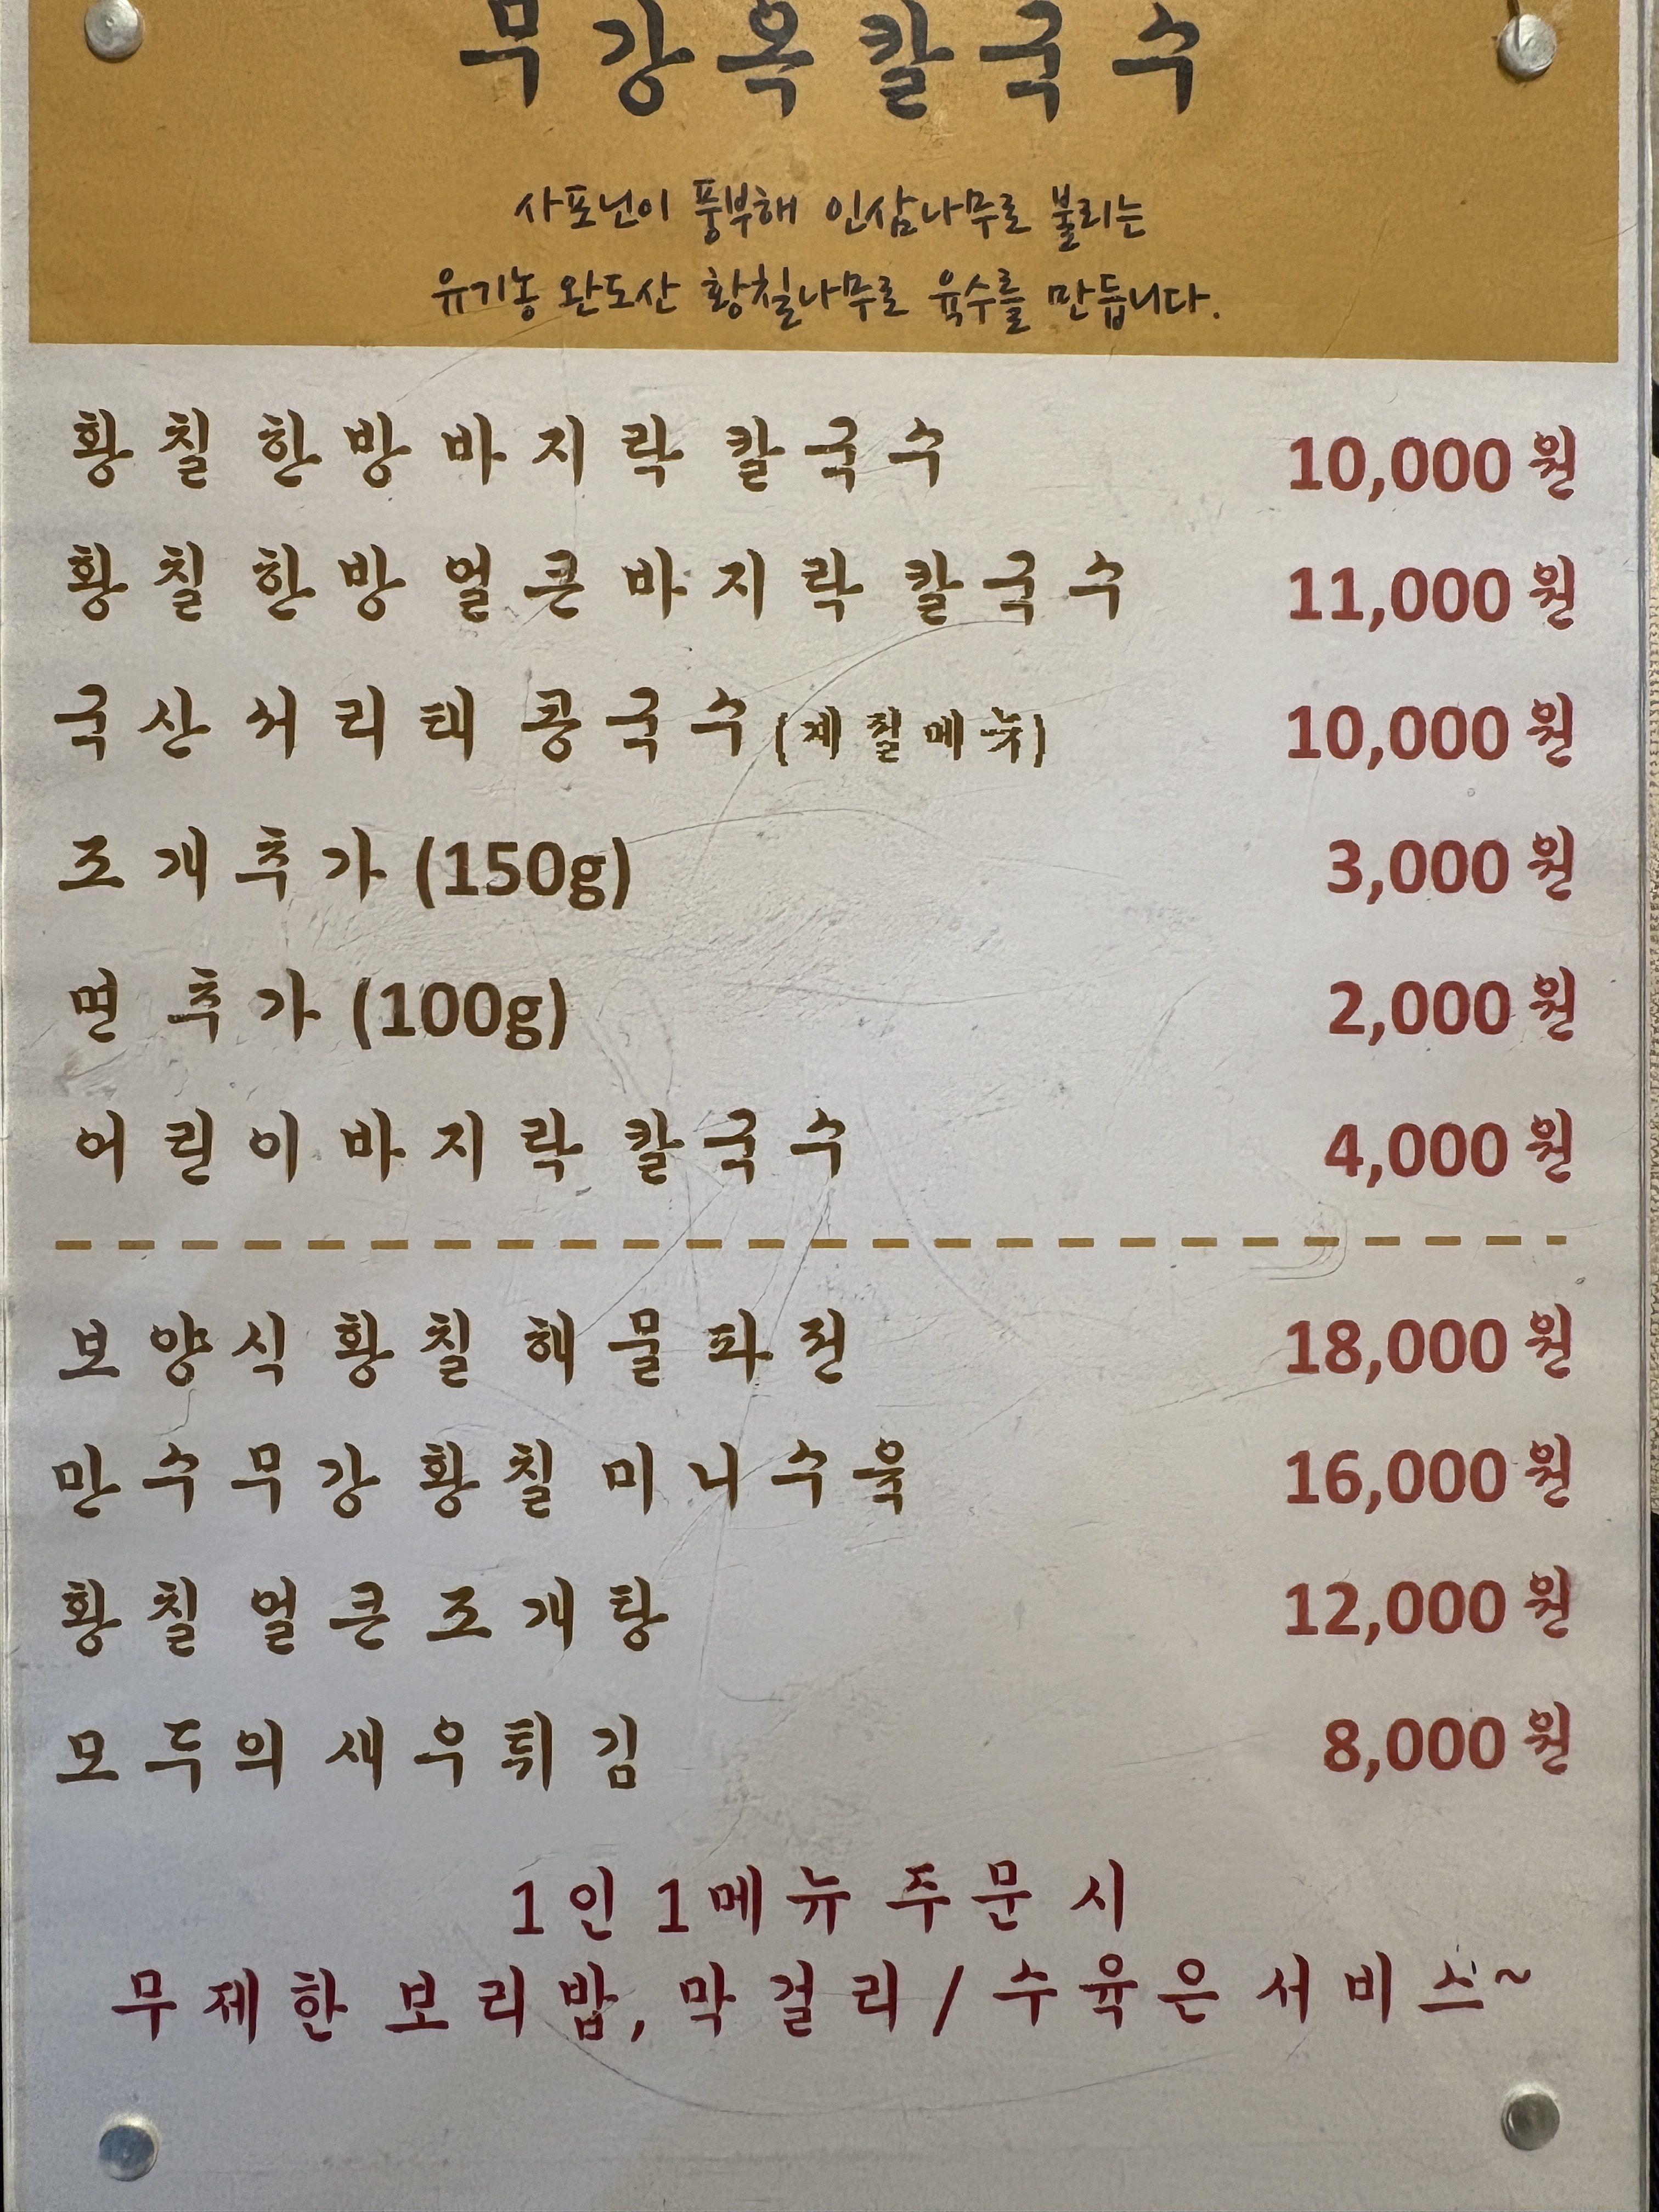 무강옥칼국수
사포닌이 풍부해 인삼나무로 불리는
유기농 완도산 황칠나무로 육수를 만듭니다.
황칠 한방바지락 칼국수 10,000원
황칠 한방 얼큰바지락 칼국수 11,000원
국산서리태 콩국수(계절메뉴) 10,000원
조개추가 (150g) 3,000원
면 추가 (100g) 2,000원
어린이바지락 칼국수 4,000원
보양식 황칠 해물파전 18,000원
만수무강 황칠 미니수육 16,000원
황칠 얼큰조개탕 12,000원
모두의 새우튀김 8,000원
1인 1메뉴 주문 시
무제한 보리밥, 막걸리 / 수육은 서비스~